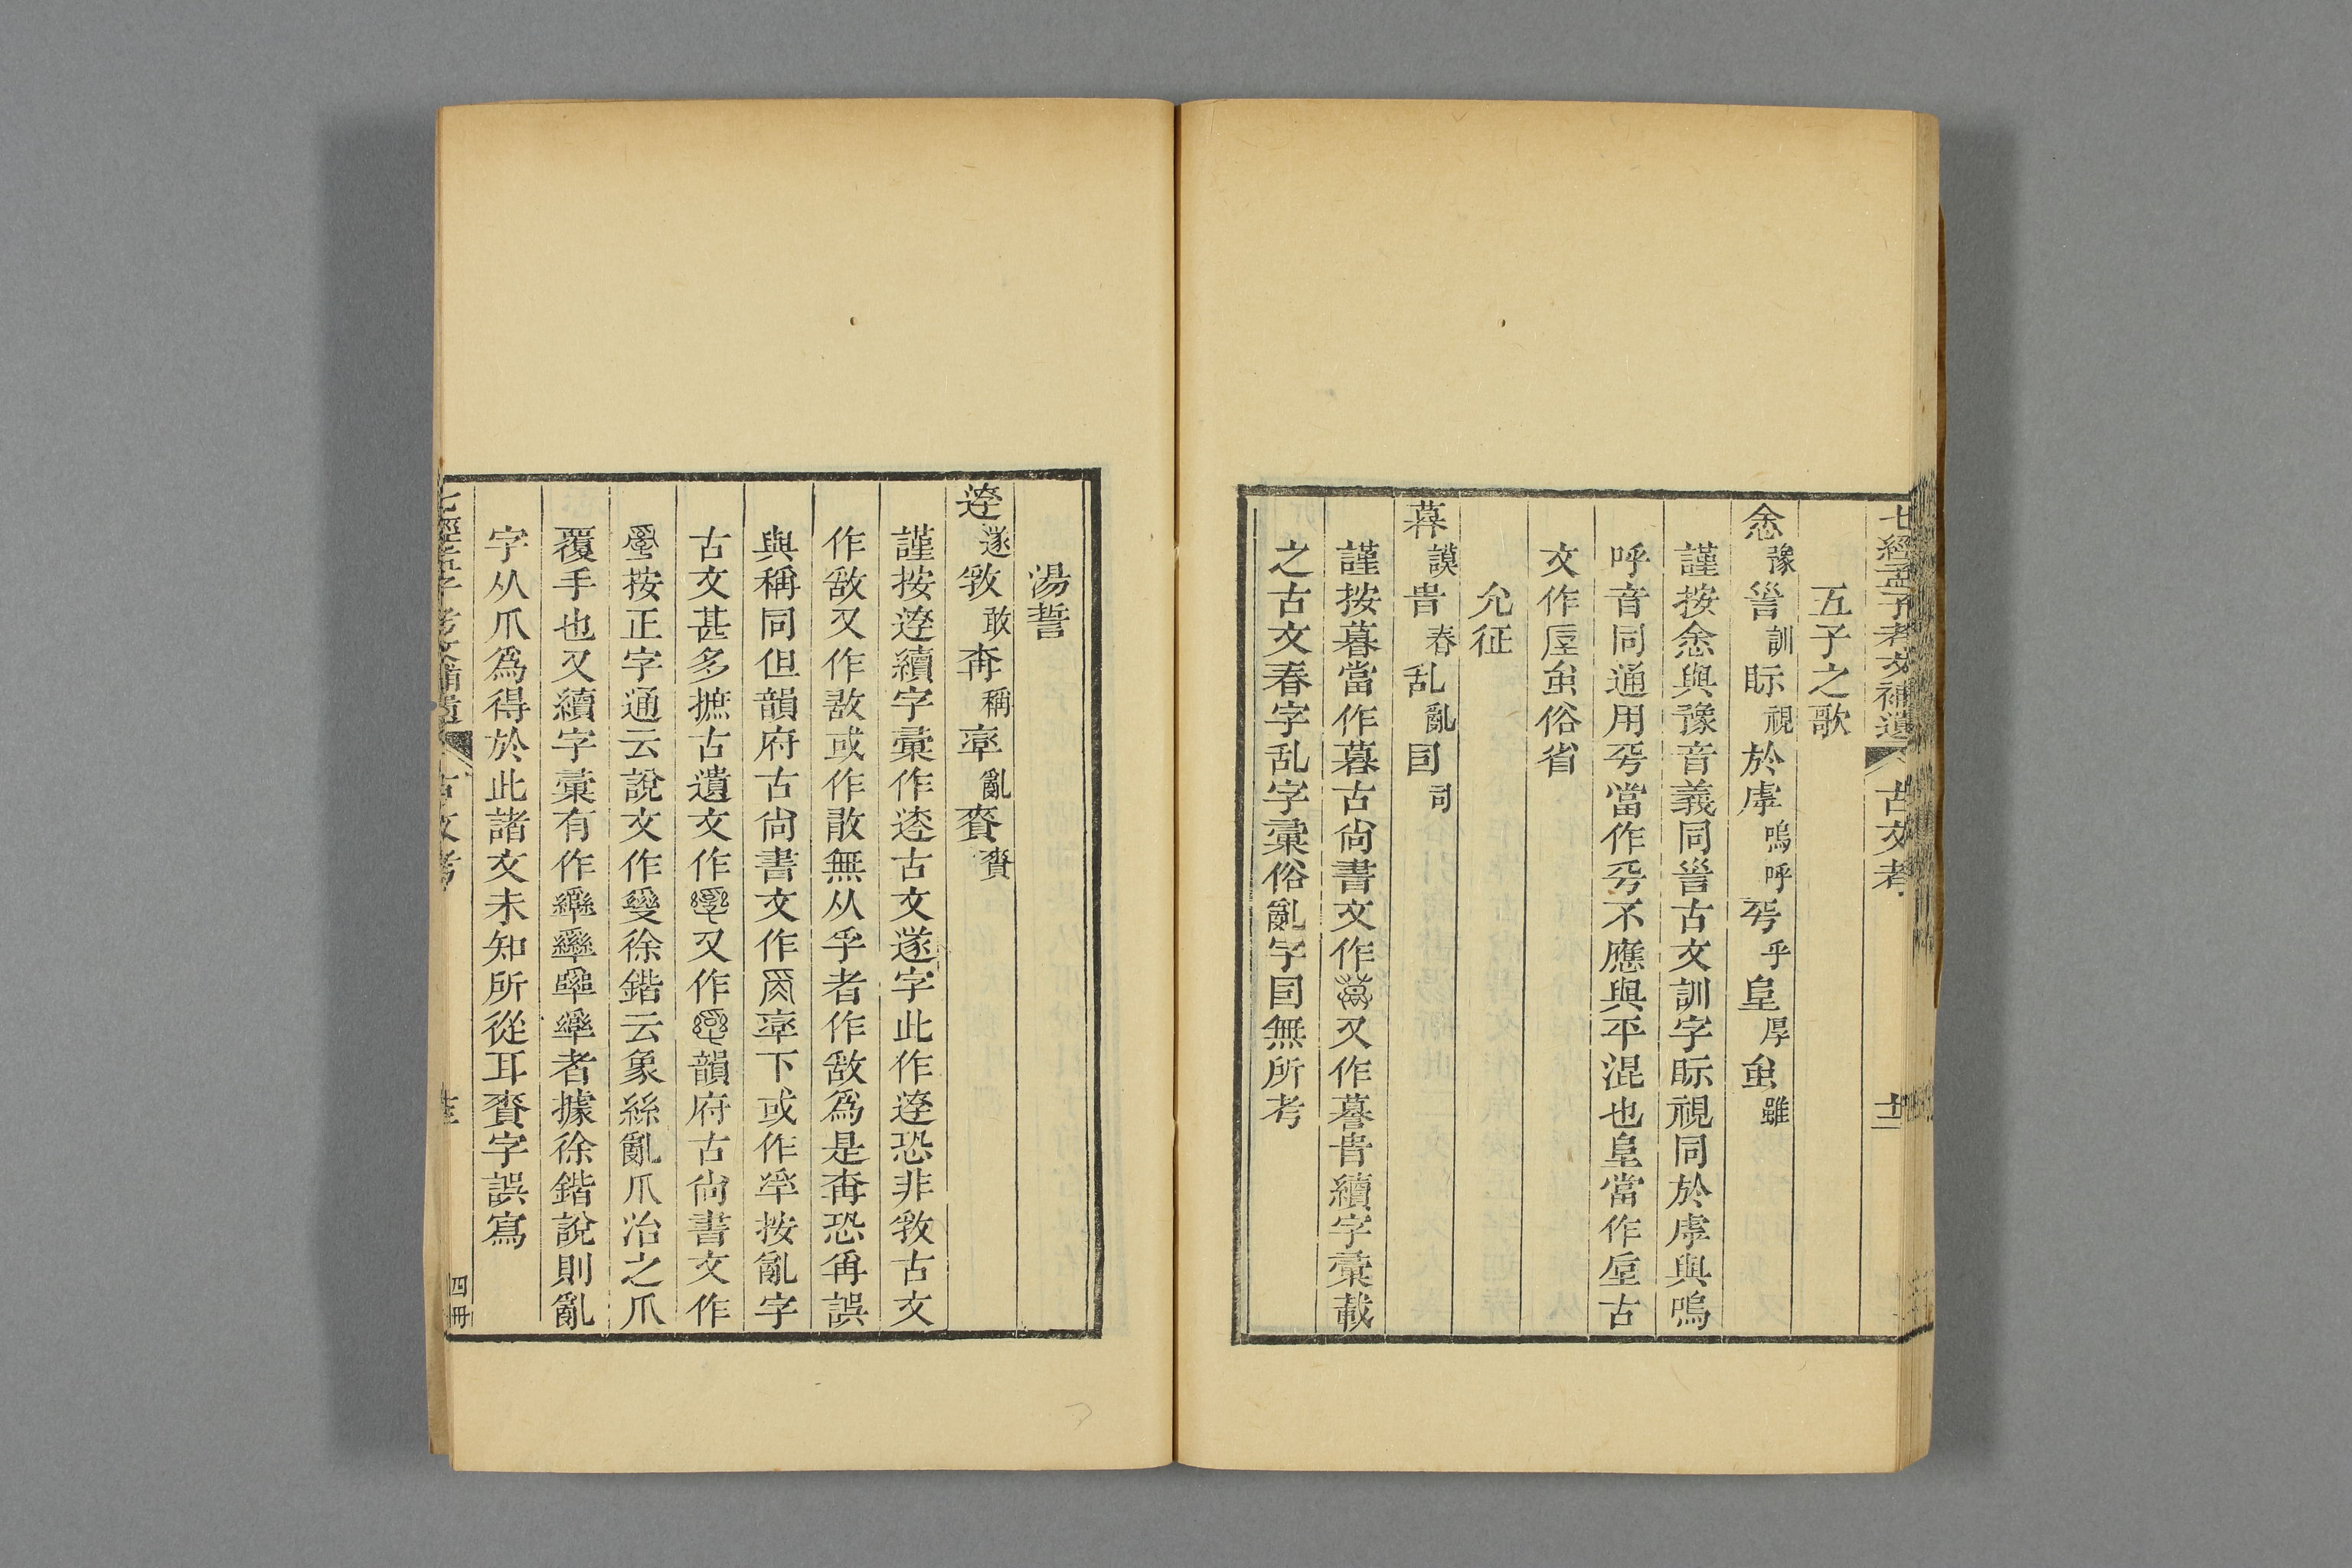 七經孟子考文補遺 古文考 十二
五子之歌
悆豫 訓 眎視 於虖嗚呼 乎 厚 䖝雖
謹按悆與豫音義同 古文訓字眎視同於虖與嗚
呼音同通用 當作 不應與平混也 當作垕古
文作 䖝俗省
允征
謨 旾春 乱亂 司
謹按 當作暮古尙書文作 又作 旾續字彙載
之古文春字乱字彙俗亂字 無所考
湯誓
遂 敢 稱 亂 賚
謹按 續字彙作 古文遂字此作 恐非 古文
作敔又作敌或作敢無从孚者作 爲是 恐爯誤
與稱同但韻府古尙書文作 下或作 按亂字
古文甚多摭古遺文作 又作 韻府古尙書文作
按正字通云說文作 徐鍇云象絲亂爪治之爪
覆手也又續字彙有作 者據徐鍇說則亂
字从爪爲得於此諸文未知所從耳 字誤寫
古文考 四冊